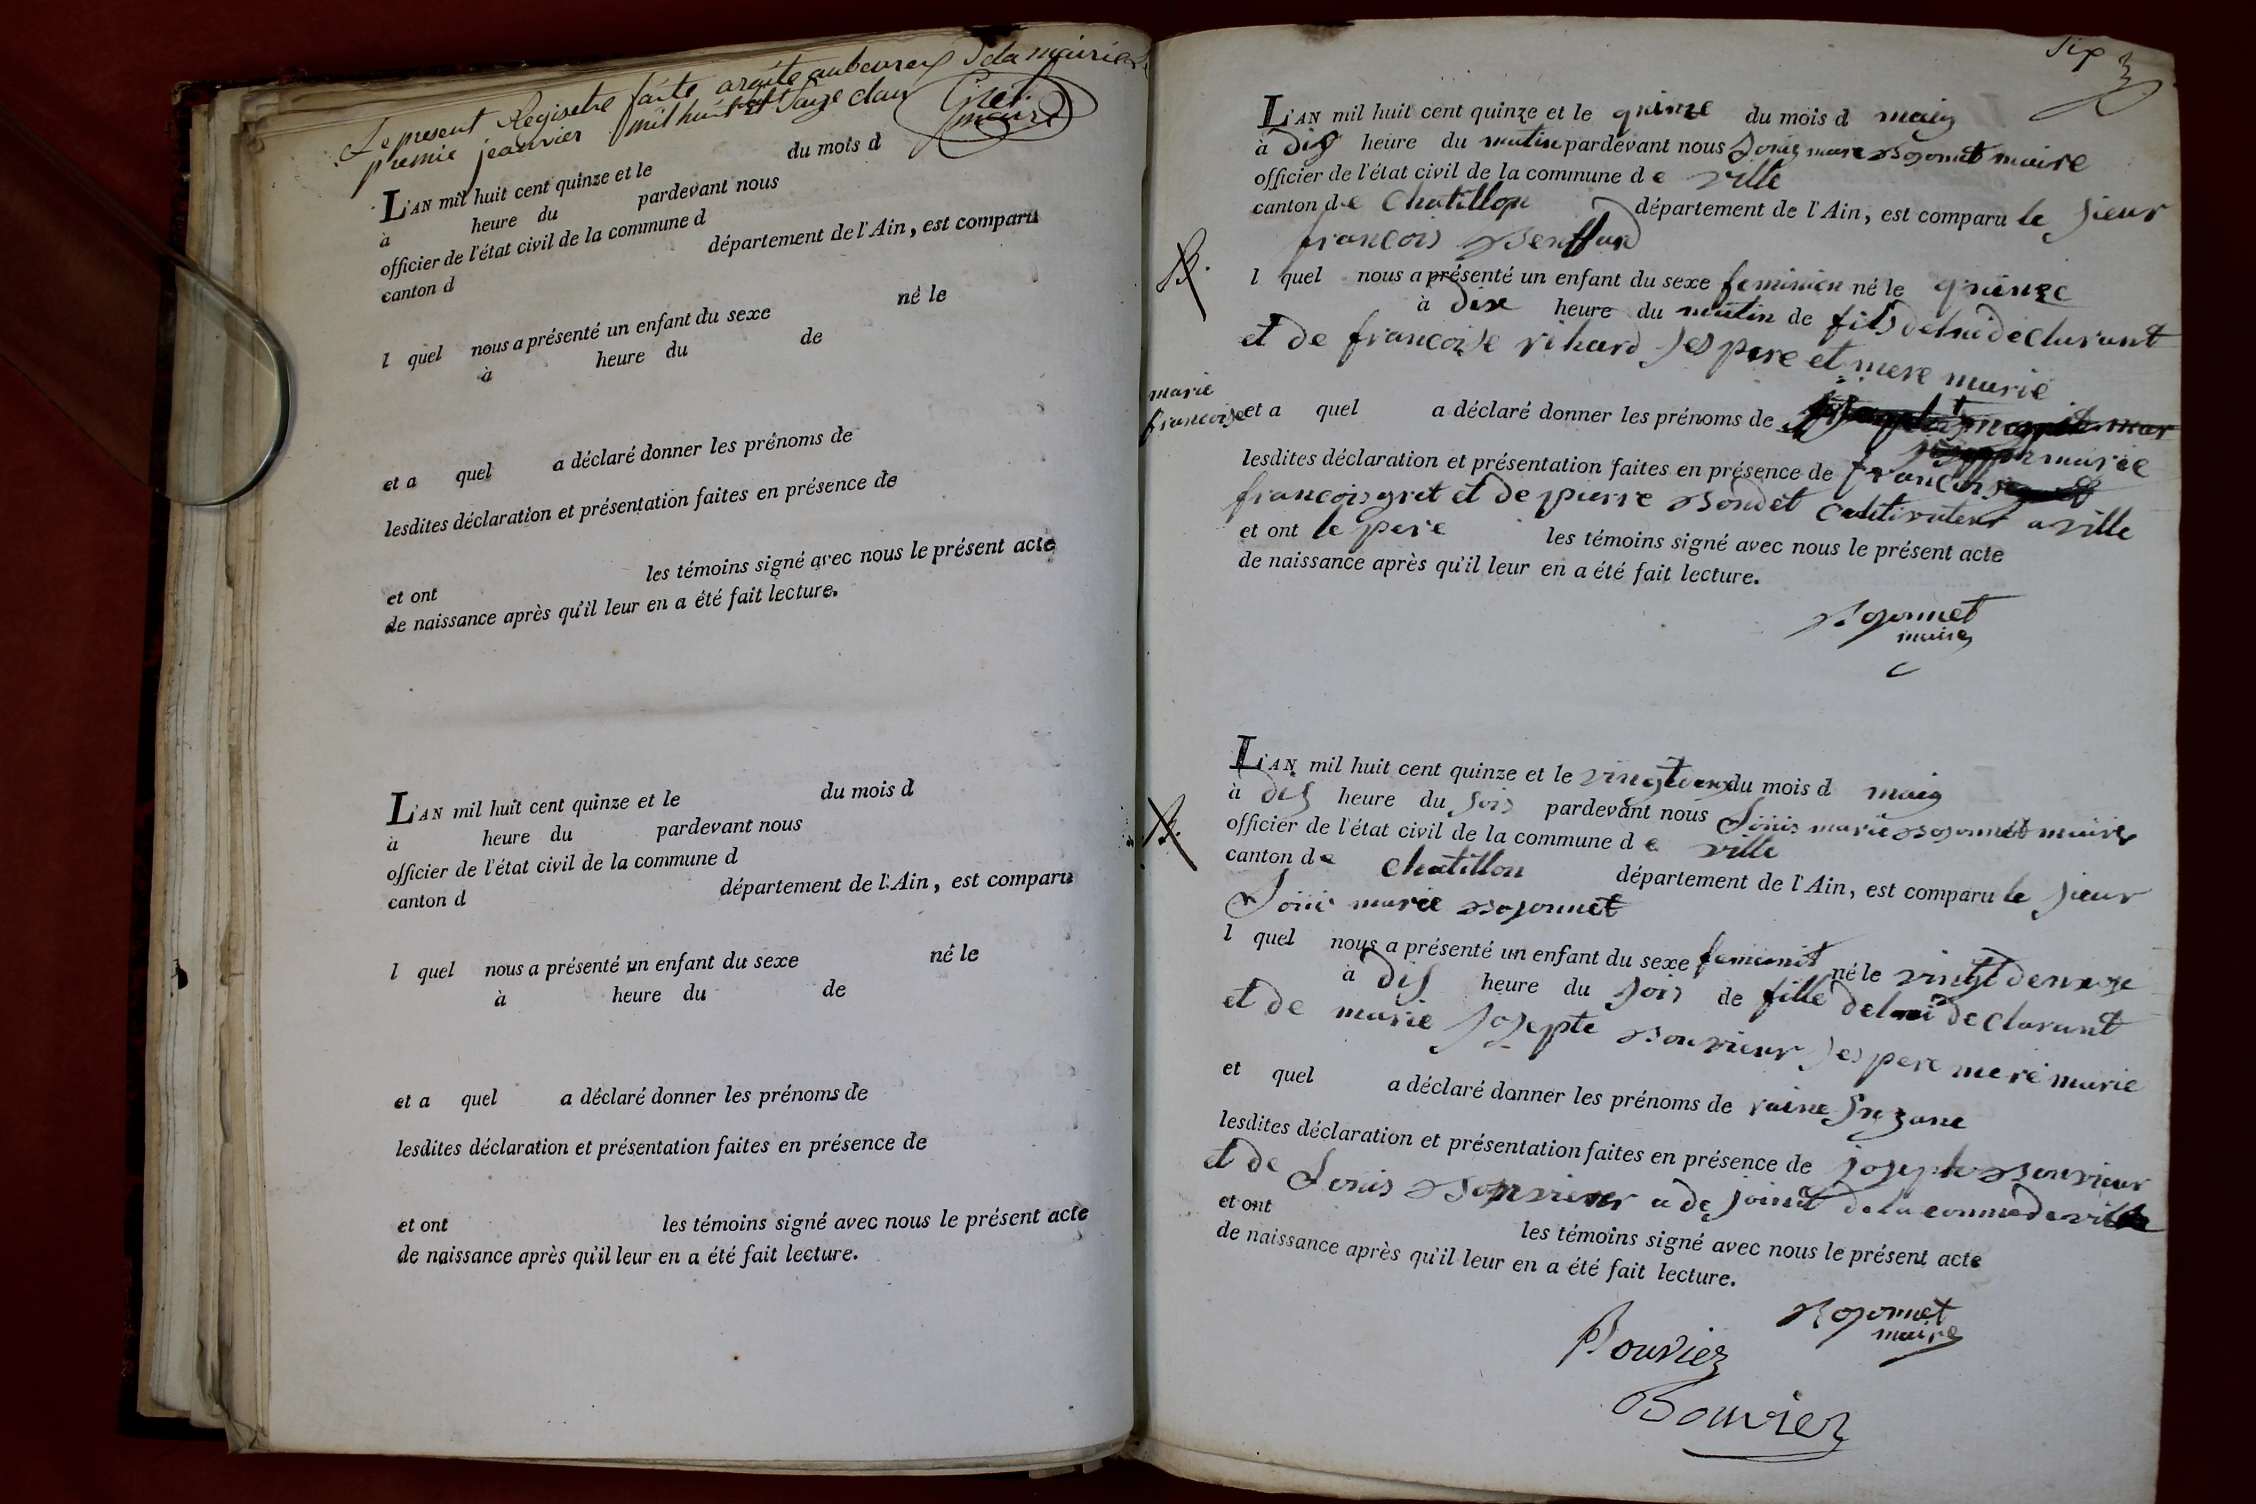 Le present Registre faite arrête aubeureux dela mairie
premie jeanvier mil huit cent Saize claus Gret
maire
L'AN mil huit cent quinze et le du mois d
à heure du pardevant nous
officier de l'état civil de la commune d
canton d département de l'Ain, est comparu
l quel nous a présenté un enfant du sexe né le
à heure du de
et a quel a déclaré donner les prénoms de
lesdites déclaration et présentation faites en présence de
et ont les témoins signé avec nous le présent acte
de naissance après qu'il leur en a été fait lecture.
L'AN mil huit cent quinze et le du mois d
à heure du pardevant nous
officier de l'état civil de la commune d
canton d département de l'Ain, est comparu
l quel nous a présenté un enfant du sexe né le
à heure du de
et a quel a déclaré donner les prénoms de
lesdites déclaration et présentation faites en présence de
et ont les témoins signé avec nous le présent acte
de naissance après qu'il leur en a été fait lecture.
Six
L'AN mil huit cent quinze et le quinze du mois d maiy
à dis heure du matin pardevant nous Bojonnet maire
officier de l'état civil de la commune d e ville
canton d e Chatillon département de l'Ain, est comparu le sieur
francois
l quel nous a présenté un enfant du sexe feminien né le quinze
à dix heure du matin de fils delui declarant
et de francoise rihard ses pere et mere marié
marie
francoise
et a quel a déclaré donner les prénoms de
marie
lesdites déclaration et présentation faites en présence de francois
francois gret et de pierre Bondet cultivateur a ville
et ont le pere les témoins signé avec nous le présent acte
de naissance après qu'il leur en a été fait lecture.
Bojonnet
maire
L'AN mil huit cent quinze et le vingtdeux du mois d maiy
à dis heure du soir pardevant nous Louis marie Bojonnet maire
officier de l'état civil de la commune d e ville
canton d e chatillon département de l'Ain, est comparu le sieur
Louis marie Bojonnet
l quel nous a présenté un enfant du sexe né le vingt deuxze
à dis heure du soir de fille delui declarant
et de marie Josepte Bouvieur ses pere mere marié
et quel a déclaré donner les prénoms de raine Suzane
lesdites déclaration et présentation faites en présence de joseph Bouvieur
et de Louis Bouvieur a de joint dela comme de ville
et ont les témoins signé avec nous le présent acte
de naissance après qu'il leur en a été fait lecture.
Bojonnet
maire
Bouvier
Bouvier